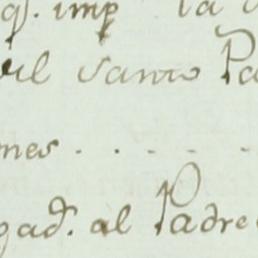 q.̃ imp la
el santo Pa
mes . . . . .
gad.̃ al Padre